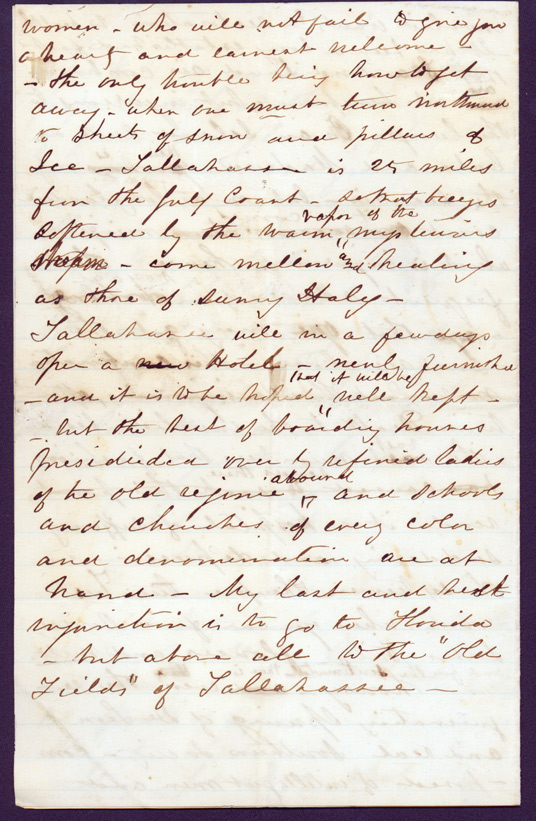 women - who will not fail to give you
a hearty and earnest welcome -
- the only trouble being how to get
away - when one must turn northward
to sheets of snow and pillars of
Ice - Tallahassee is 25 miles
from the Gulf Coast - breezes
vapor of the
softened by the warm mysterious
stream - come mellow and healing
as those of sunny Italy -
Tallahassee will in a few days
open a new Hotel - newly furnished
that it will be
- and it is to be hoped well kept -
- but the best of boarding houses
presideded over by refined ladies
abound
of the old regime and schools
and churches of every color
and denomination are at
hand - My last and best
injunction is to go to Florida
- but above all to the "Old
Fields" of Tallahassee -